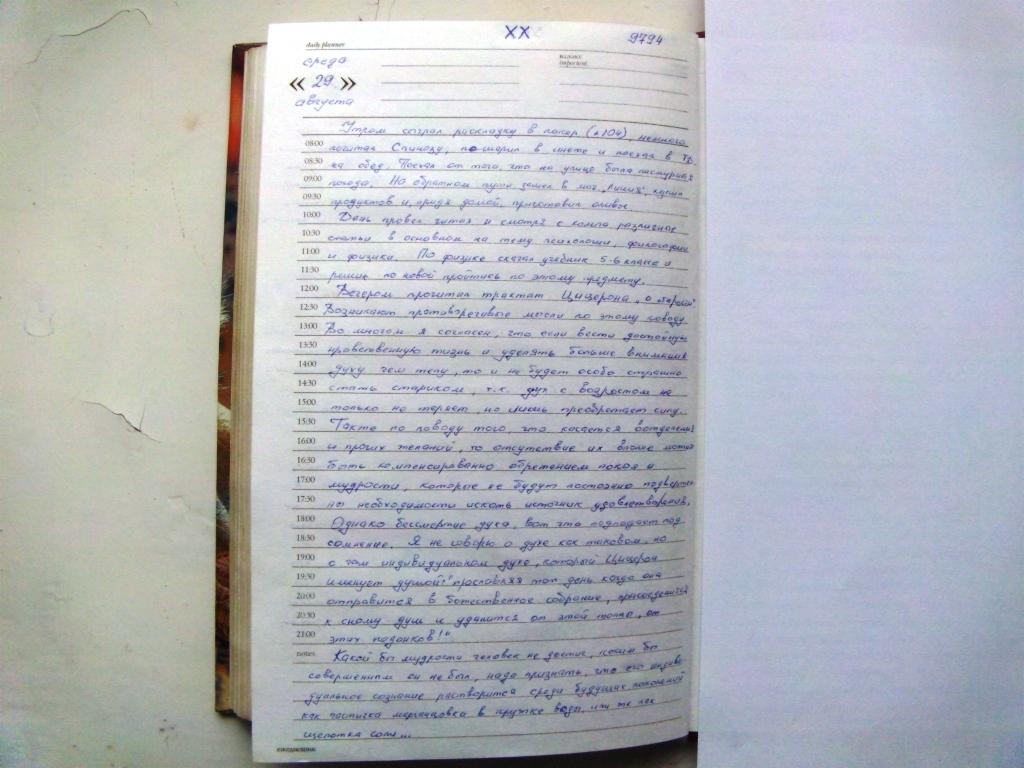 XX
9794
daily planner
среда
важно:
« 29 »
августа
Утром сыграл раскладку в покер (*104), немного
08:00
почитал Спинозу, пошарил в инете и поехал в
08:30
на обед. Поехал от того, что на улице была пасмурная
09:00
погода. На обратном пути зашел в маг. купил
09:30
продуктов и, придя домой, приготовил
10:00
День провел читая и смотря с компа различные
10:30
статьи в основном на тему психологии, философии
11:00
и физики. По физике скачал учебник 5-6 класса и
11:30
решил по новой пройтись по этому предмету.
12:00
Вечером прочитал трактат Цицерона „О старости"
12:30
Возникают противоречивые мысли по этому поводу.
13:00
Во многом я согласен, что если вести достойную
13:30
нравственную жизнь и уделять больше внимания
14:00
духу чем телу, то и не будет особо страшно
14:30
стать стариком, т.к. дух с возрастом не
15:00
только не теряет, но лишь преобретает силу.
15:30
Также по поводу того, что касается вожделений
16:00
и прочих желаний, то отсутствие их вполне может
16:30
быть компенсированно обретением покоя и
17:00
мудрости, которое не будут постоянно подверже-
17:30
ны необходимости искать источник удовлетворения.
18:00
Однако бессмертие духа, вот что подпадает под
18:30
сомнение. Я не говорю о духе как таковом, но
19:00
о том индивидуальном духе, который Цицерон
19:30
именует душой: "прославляя тот день когда она
20:00
отправится в божественное собрание, присоединится
20:30
к сонму душ и удалится от этой толпы, от
21:00
этих подонков!"
notes
Какой бы мудрости человек не достиг, каким бы
совершенным он не был, надо признать, что его индиви-
дуальное сознание растворится среди будущих поколений
как частичка марганцовка в кружке воды, или же как
щепотка соли...
ежедневник